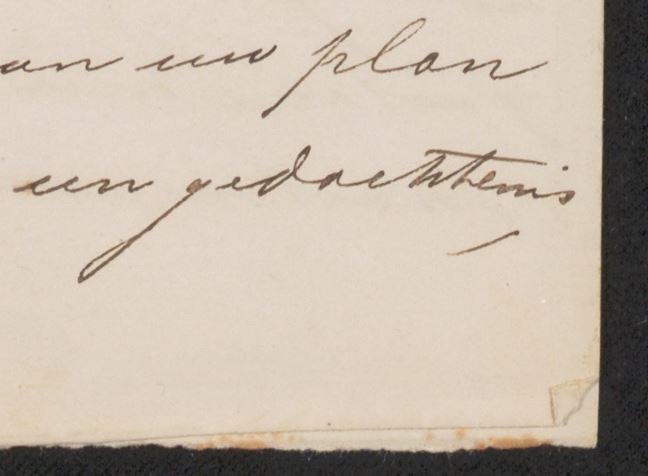 an uw plan
een gedachtenis